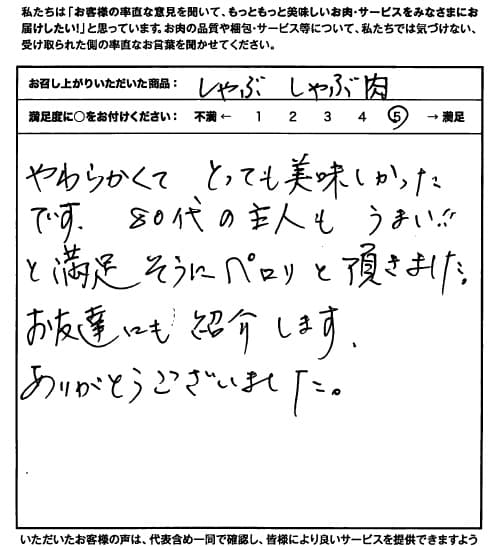 私たちは「お客様の率直な意見を聞いて、もっともっと美味しいお肉・サービスをみなさまにお
届けしたい！」と思っています。お肉の品質や梱包・サービス等について、私たちでは気づけない、
受け取られた側の率直なお言葉を聞かせてください。
お召し上がりいただいた商品： しゃぶ しゃぶ肉
満足度に○をお付けください： 不満 ← 1 2 3 4 5 → 満足
やわらかくて とっても美味しかった
です. 80代の主人も うまい!!
と満足そうにペロリと頂きました。
お友達にも紹介します.
ありがとうございました。
いただいたお客様の声は、代表含め一同で確認し、皆様により良いサービスを提供できますよう